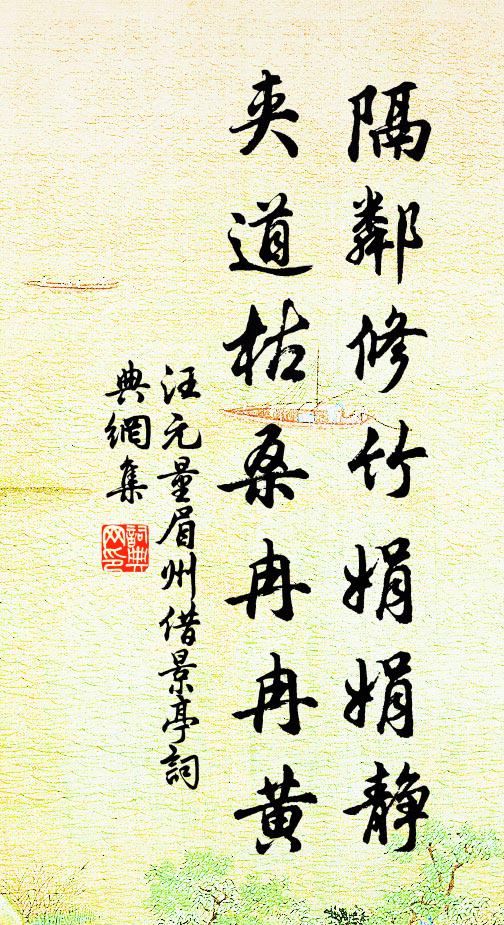 隔鄰修竹娟娟静
夾道枯桑冉冉黄
汪元量眉州借景亭詞
典網集
詞典
网印